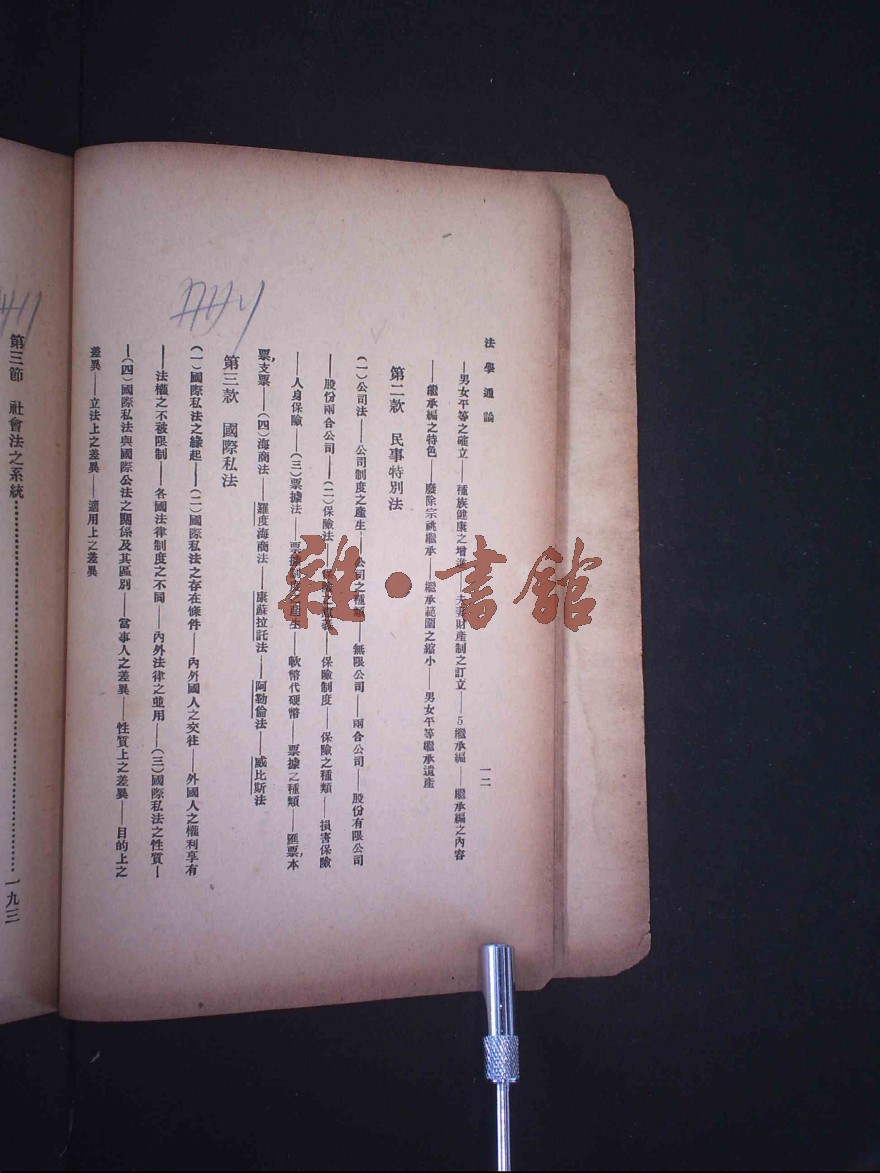 法學通論
一二
——男女平等之確立——種族健康之增進——夫妻財產制之訂立——5繼承編——繼承編之內容
——繼承編之特色——廢除宗祧繼承——繼承範圍之縮小——男女平等繼承遺產
第二款 民事特別法
(一)公司法——公司制度之產生——公司之種類——無限公司——兩合公司——股份有限公司
——股份兩合公司——(二)保險法——保險之意義——保險制度——保險之種類——損害保險
——人身保險——(三)票據法——票據制度之產生——軟幣代硬幣——票據之種類——匯票,本
票,支票——(四)海商法——羅度海商法——康蘇拉託法——阿勒倫法——威比斯法
第三款 國際私法
(一)國際私法之緣起——(二)國際私法之存在條件——內外國人之交往——外國人之權利享有
——法權之不被限制——各國法律制度之不同——內外法律之並用——(三)國際私法之性質—
—(四)國際私法與國際公法之關係及其區別——當事人之差異——性質上之差異——目的上之
差異——立法上之差異——適用上之差異
第三節 社會法之系統…………………………一九三
雜·書館